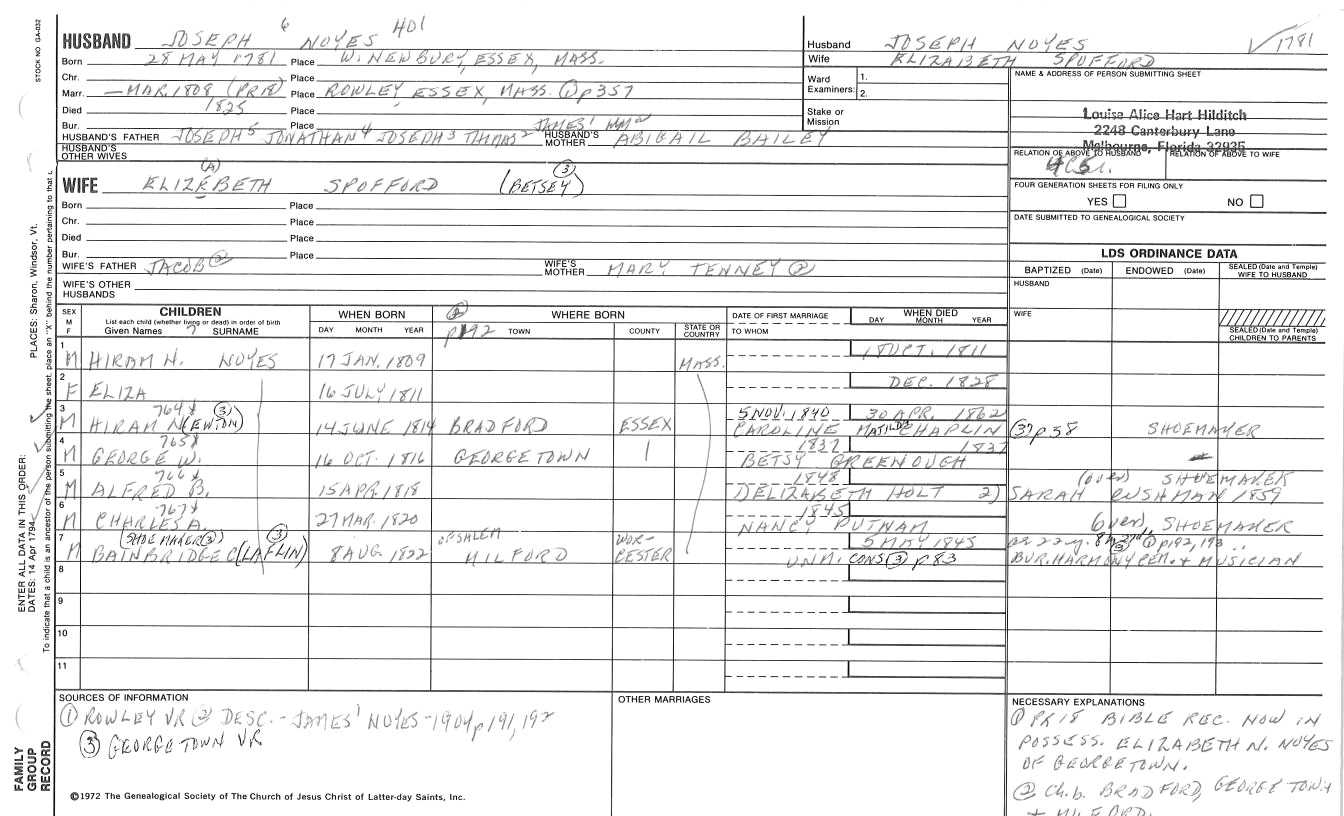 STOCK NO GA-032
HUSBAND JOSEPH 6 NOYES 401
Born 28 MAY 1781 Place W. NEWBURY, ESSEX, MASS.
Chr. Place
Marr. — MAR. 1809 (PR18) Place ROWLEY, ESSEX, MASS. ① p357
Died 1825
Bur. Place
HUSBAND'S FATHER JOSEPH 5 JONATHAN 4 JOSEPH 3 THOMAS 2 JAMES 1 WM HUSBAND'S MOTHER ABIGAIL BAILEY
HUSBAND'S OTHER WIVES
Husband JOSEPH NOYES 1781
Wife ELIZABETH SPOFFORD
Ward Examiners: 1. 2.
Stake or Mission
NAME & ADDRESS OF PERSON SUBMITTING SHEET
Louise Alice Hart Hilditch
2248 Canterbury Lane
Melbourne, Florida 32935
RELATION OF ABOVE TO HUSBAND RELATION OF ABOVE TO WIFE
FOUR GENERATION SHEETS FOR FILING ONLY
YES NO
DATE SUBMITTED TO GENEALOGICAL SOCIETY
WIFE ELIZEBETH (A) SPOFFORD (BETSEY) ③
Born Place
Chr. Place
Died Place
Bur. Place
WIFE'S FATHER JACOB ② WIFE'S MOTHER MARY TENNEY ②
WIFE'S OTHER HUSBANDS
LDS ORDINANCE DATA
BAPTIZED (Date) ENDOWED (Date) SEALED (Date and Temple) WIFE TO HUSBAND
HUSBAND
WIFE
SEALED (Date and Temple) CHILDREN TO PARENTS
SEX M F CHILDREN List each child (whether living or dead) in order of birth Given Names 7 SURNAME
WHEN BORN DAY MONTH YEAR
WHERE BORN ② p192 TOWN COUNTY STATE OR COUNTRY
DATE OF FIRST MARRIAGE TO WHOM
WHEN DIED DAY MONTH YEAR
1 M HIRAM N. NOYES 17 JAN. 1809 MASS. 18 OCT. 1811
2 F ELIZA 16 JULY 1811 DEC. 1828
3 M 764 HIRAM N(EWTON) ③ 14 JUNE 1814 BRADFORD ESSEX 5 NOV. 1840 30 APR. 1862 CAROLINE MATILDA CHAPLIN p58 SHOEMAKER
4 M 765 GEORGE W. 16 OCT. 1816 GEORGETOWN 1837 1837 BETSY GREENOUGH
5 M 766 ALFRED B. 15 APR. 1818 1848 1) ELIZABETH HOLT 2) SARAH CUSHMAN 1859 (over) SHOEMAKER
6 M 767 CHARLES A. 27 MAR. 1820 1845 NANCY PUTNAM (over) SHOEMAKER
7 M (SHOEMAKER ③) BAINBRIDGE C (LAFLIN) ③ 8 AUG. 1822 OF SALEM MILFORD WORCESTER 5 MAY 1845 UNM. CONS ③ p83 ae 22 y. 8 m. 27 d. ① p192, 193
BUR. HARMONY CEM. + MUSICIAN
8
9
10
11
SOURCES OF INFORMATION
① ROWLEY VR ② DESC. - JAMES' NOYES - 1904 p191, 192
③ GEORGETOWN VR
OTHER MARRIAGES
NECESSARY EXPLANATIONS
① PR18 BIBLE REC. NOW IN
POSSESS. ELIZABETH N. NOYES
OF GEORGETOWN.
② Ch. b. BRADFORD, GEORGETOWN
+ MILFORD.
©1972 The Genealogical Society of The Church of Jesus Christ of Latter-day Saints, Inc.
FAMILY GROUP RECORD
ENTER ALL DATA IN THIS ORDER:
DATES: 14 Apr 1794
PLACES: Sharon, Windsor, Vt.
To indicate that a child is an ancestor of the person submitting the sheet, place an "X" behind the number pertaining to that